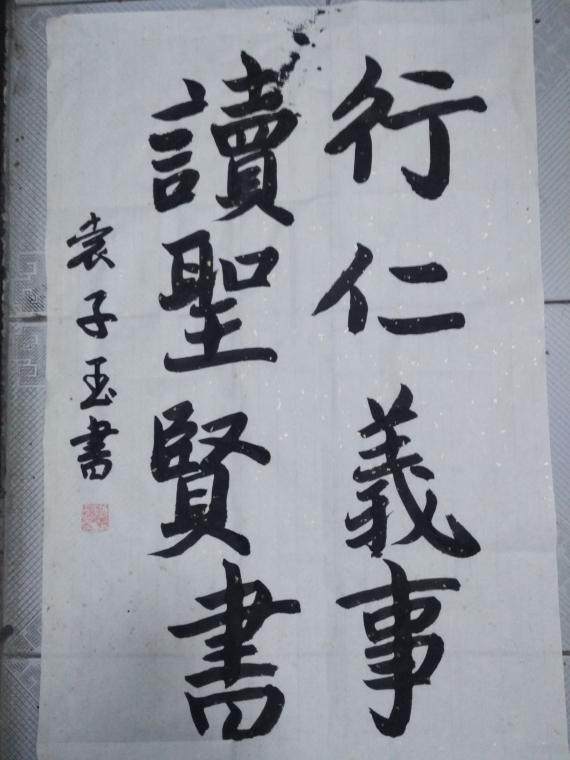 行仁義事
讀聖賢書
袁子玉書